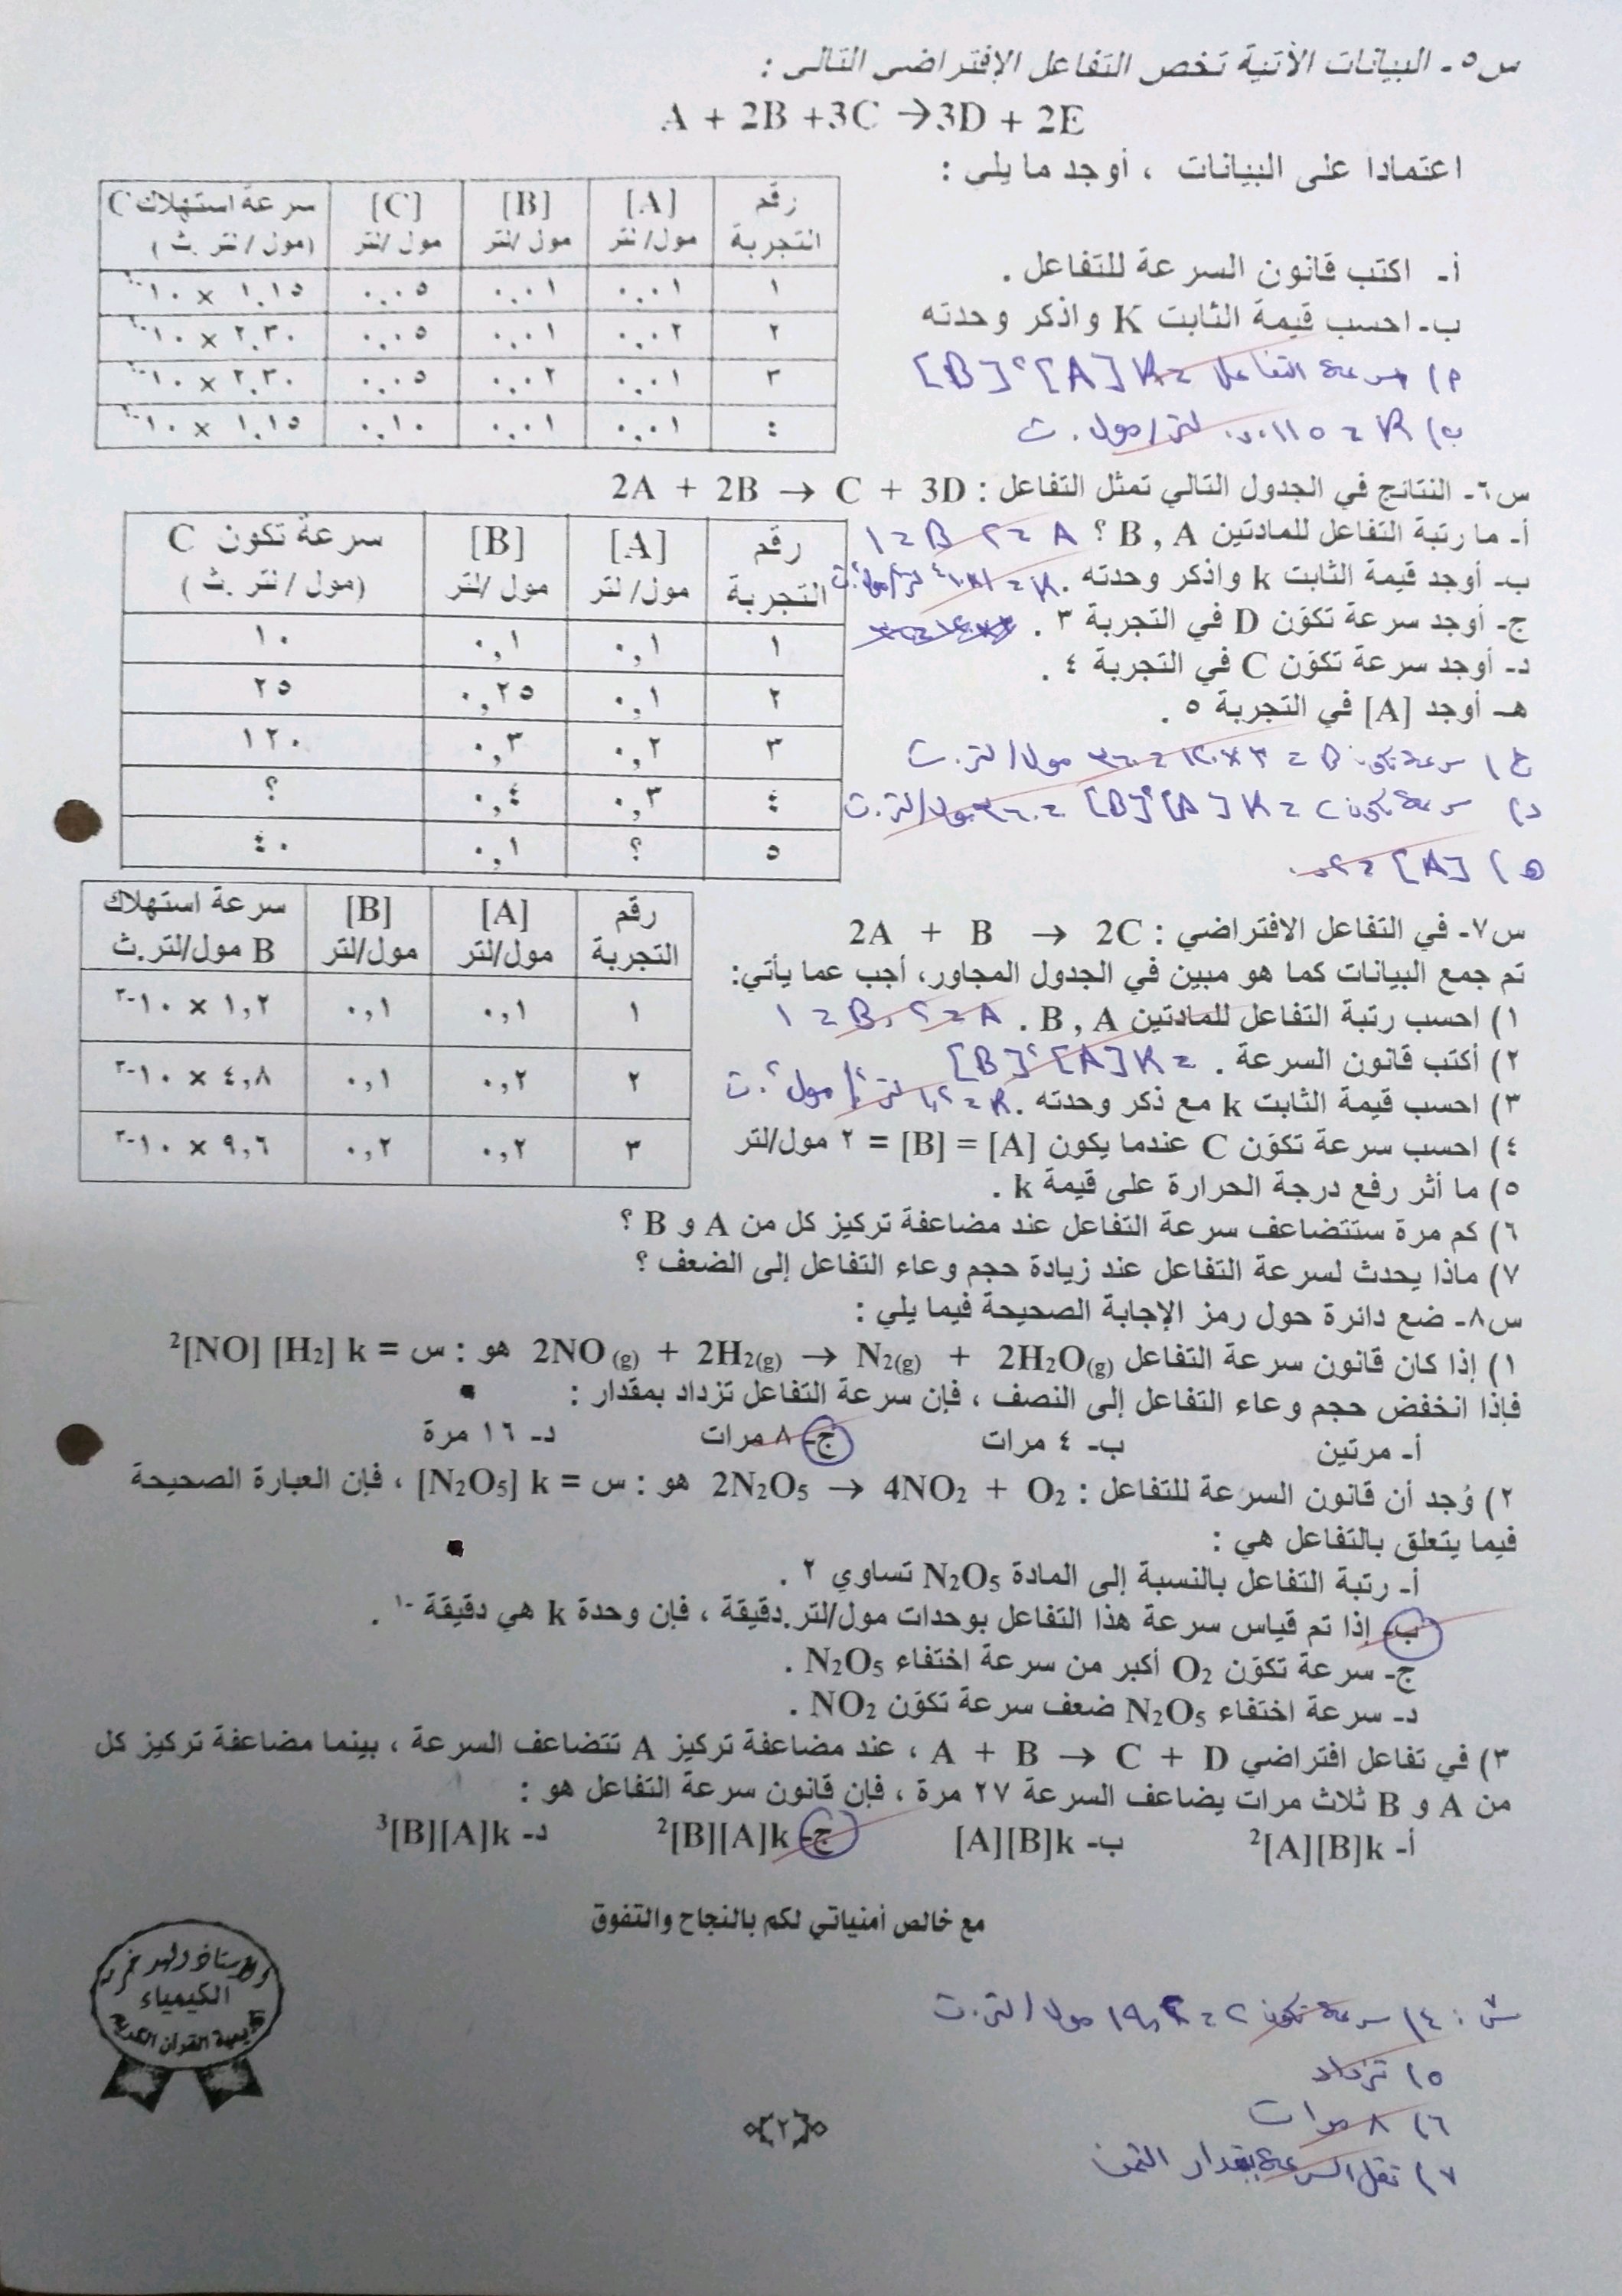 س٥- البيانات الآتية تخص التفاعل الإفتراضى التالى :
A + 2B +3C →3D + 2E
اعتمادا على البيانات ، أوجد ما يلي :
رقم التجربة [A] مول/لتر [B] مول/لتر [C] مول/لتر سرعة استهلاك C (مول / لتر .ث )
١ ٠.٠١ ٠.٠١ ٠.٠٥
٢ ٠.٠٢ ٠.٠١ ٠.٠٥
٣ ٠.٠١ ٠.٠٢ ٠.٠٥
٤ ٠.٠١ ٠.٠١ ٠.١٠
أ- اكتب قانون السرعة للتفاعل .
ب- احسب قيمة الثابت K واذكر وحدته
أ) سرعة التفاعل = K [A] [B]
ب) K = لتر/مول . ث
س٦- النتائج في الجدول التالي تمثل التفاعل : 2A + 2B → C + 3D
رقم التجربة [A] مول/ لتر [B] مول /لتر سرعة تكون C (مول / لتر .ث )
١ ٠,١ ٠,١ ١٠
٢ ٠,١ ٠,٢٥ ٢٥
٣ ٠,٢ ٠,٣ ١٢٠
٤ ٠,٣ ٠,٤ ؟
٥ ؟ ٠,١ ٤٠
أ- ما رتبة التفاعل للمادتين B , A ؟ A = ٢ B = ١
ب- أوجد قيمة الثابت k واذكر وحدته .
ج- أوجد سرعة تكوّن D في التجربة ٣ .
د- أوجد سرعة تكوّن C في التجربة ٤ .
هـ- أوجد [A] في التجربة ٥ .
ج) سرعة تكون D = ٣ × ١٢٠ = ٣٦٠ مول/لتر.ث
د) سرعة تكون C = K [A]² [B] = ٣٦٠ مول/لتر.ث
هـ) [A] = ٠.٢
س٧- في التفاعل الافتراضي : 2A + B → 2C
تم جمع البيانات كما هو مبين في الجدول المجاور، أجب عما يأتي:
رقم التجربة [A] مول/لتر [B] مول/لتر سرعة استهلاك B مول/لتر.ث
١ ٠,١ ٠,١ ١,٢ × ١٠-٣
٢ ٠,٢ ٠,١ ٤,٨ × ١٠-٣
٣ ٠,٢ ٠,٢ ٩,٦ × ١٠-٣
١) احسب رتبة التفاعل للمادتين B , A . A = ٢ , B = ١
٢) أكتب قانون السرعة . = K [A]² [B]
٣) احسب قيمة الثابت k مع ذكر وحدته . K = ١,٢ لتر²/مول².ث
٤) احسب سرعة تكوّن C عندما يكون [A] = [B] = ٢ مول/لتر
٥) ما أثر رفع درجة الحرارة على قيمة k .
٦) كم مرة ستتضاعف سرعة التفاعل عند مضاعفة تركيز كل من A و B ؟
٧) ماذا يحدث لسرعة التفاعل عند زيادة حجم وعاء التفاعل إلى الضعف ؟
س٨- ضع دائرة حول رمز الإجابة الصحيحة فيما يلي :
١) إذا كان قانون سرعة التفاعل 2NO(g) + 2H₂(g) → N₂(g) + 2H₂O(g) هو : س = k [H₂] [NO]²
فإذا انخفض حجم وعاء التفاعل إلى النصف ، فإن سرعة التفاعل تزداد بمقدار :
أ- مرتين ب- ٤ مرات ج- ٨ مرات د- ١٦ مرة
٢) وُجد أن قانون السرعة للتفاعل : 2N₂O₅ → 4NO₂ + O₂ هو : س = k [N₂O₅] ، فإن العبارة الصحيحة
فيما يتعلق بالتفاعل هي :
أ- رتبة التفاعل بالنسبة إلى المادة N₂O₅ تساوي ٢ .
ب- إذا تم قياس سرعة هذا التفاعل بوحدات مول/لتر.دقيقة ، فإن وحدة k هي دقيقة -١ .
ج- سرعة تكوّن O₂ أكبر من سرعة اختفاء N₂O₅ .
د- سرعة اختفاء N₂O₅ ضعف سرعة تكوّن NO₂ .
٣) في تفاعل افتراضي A + B → C + D ، عند مضاعفة تركيز A تتضاعف السرعة ، بينما مضاعفة تركيز كل
من A و B ثلاث مرات يضاعف السرعة ٢٧ مرة ، فإن قانون سرعة التفاعل هو :
أ- k[B][A]² ب- k[B][A] ج- k[A][B]² د- k[A][B]³
مع خالص أمنياتي لكم بالنجاح والتفوق
الكيمياء
س٧ : ٤) سرعة تكون C = ١٩,٢ مول/لتر.ث
٥) تزداد
٦) ٨ مرات
٧) تقل السرعة بمقدار الثمن
٢